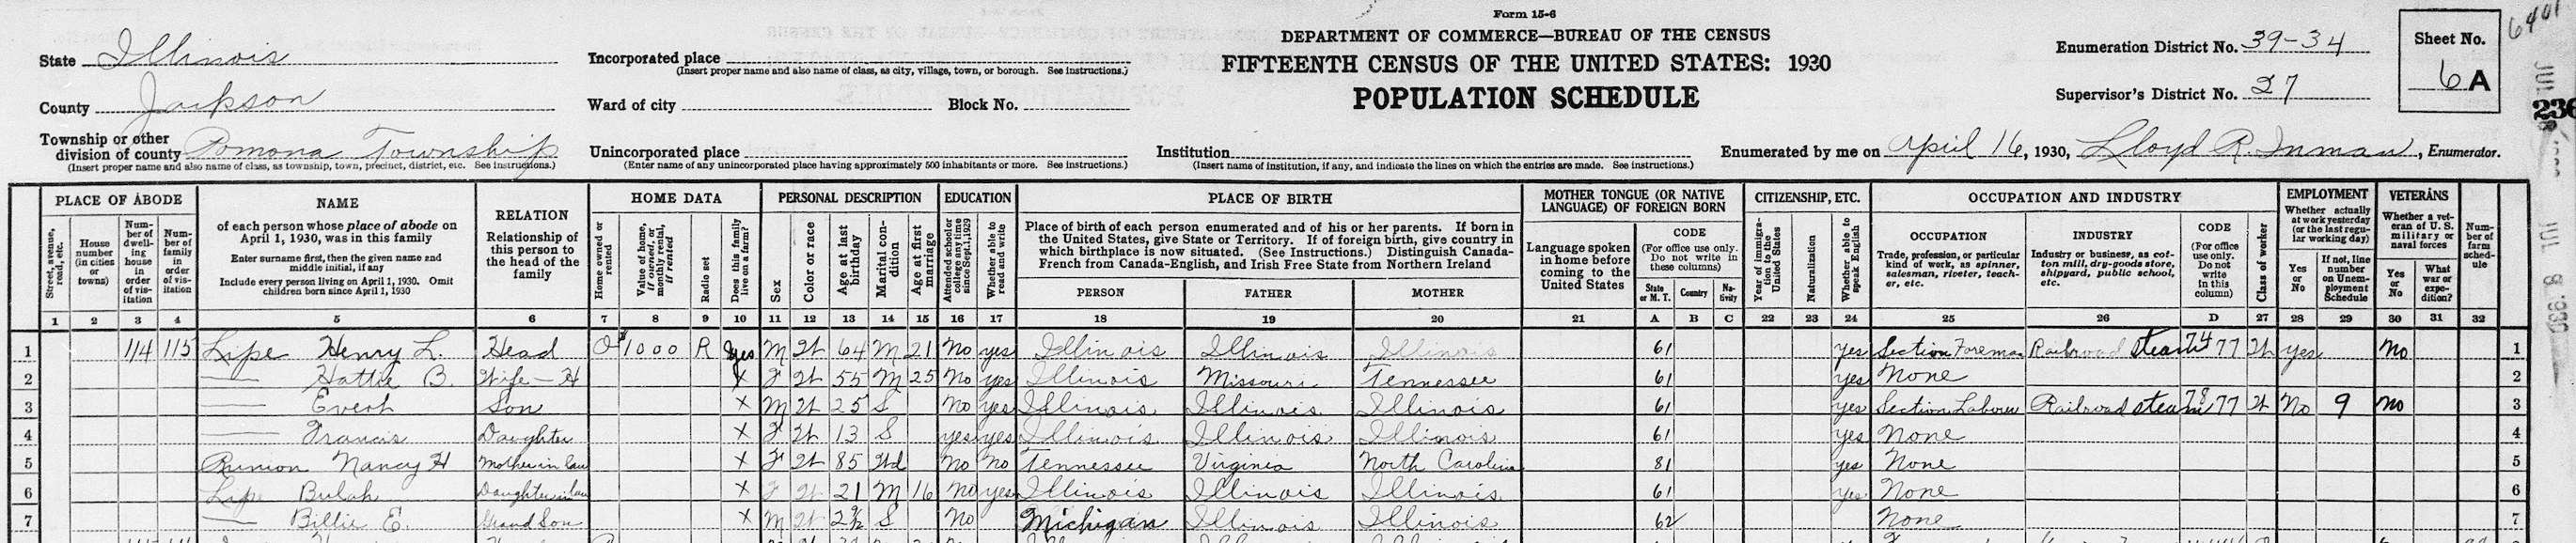 Form 15-6
DEPARTMENT OF COMMERCE—BUREAU OF THE CENSUS
FIFTEENTH CENSUS OF THE UNITED STATES: 1930
POPULATION SCHEDULE
State Illinois
County Jackson
Township or other division of county Pomona Township
(Insert proper name and also name of class, as township, town, precinct, district, etc. See instructions.)
Incorporated place
(Insert proper name and also name of class, as city, village, town, or borough. See instructions.)
Ward of city Block No.
Unincorporated place
(Enter name of any unincorporated place having approximately 500 inhabitants or more. See instructions.)
Institution
(Insert name of institution, if any, and indicate the lines on which the entries are made. See instructions.)
Enumeration District No. 39-34
Supervisor's District No. 27
Sheet No.
6 A
236
Enumerated by me on April 16, 1930, Lloyd R. Inman, Enumerator.
PLACE OF ABODE
Street, avenue, road, etc.
House number (in cities or towns)
Number of dwelling house in order of visitation
Number of family in order of visitation
NAME
of each person whose place of abode on April 1, 1930, was in this family
Enter surname first, then the given name and middle initial, if any
Include every person living on April 1, 1930. Omit children born since April 1, 1930
RELATION
Relationship of this person to the head of the family
HOME DATA
Home owned or rented
Value of home, if owned, or monthly rental, if rented
Radio set
Does this family live on a farm?
PERSONAL DESCRIPTION
Sex
Color or race
Age at last birthday
Marital condition
Age at first marriage
EDUCATION
Attended school or college any time since Sept. 1, 1929
Whether able to read and write
PLACE OF BIRTH
Place of birth of each person enumerated and of his or her parents. If born in the United States, give State or Territory. If of foreign birth, give country in which birthplace is now situated. (See Instructions.) Distinguish Canada-French from Canada-English, and Irish Free State from Northern Ireland
PERSON FATHER MOTHER
MOTHER TONGUE (OR NATIVE LANGUAGE) OF FOREIGN BORN
Language spoken in home before coming to the United States
CODE
(For office use only. Do not write in these columns)
State or M. T. Country Nativity
CITIZENSHIP, ETC.
Year of immigration to the United States
Naturalization
Whether able to speak English
OCCUPATION AND INDUSTRY
OCCUPATION
Trade, profession, or particular kind of work, as spinner, salesman, riveter, teacher, etc.
INDUSTRY
Industry or business, as cotton mill, dry-goods store, shipyard, public school, etc.
CODE
(For office use only. Do not write in this column)
Class of worker
EMPLOYMENT
Whether actually at work yesterday (or the last regular working day)
Yes or No
If not, line number on Unemployment Schedule
VETERANS
Whether a veteran of U. S. military or naval forces
Yes or No
What war or expedition?
Number of farm schedule
1 2 3 4 5 6 7 8 9 10 11 12 13 14 15 16 17 18 19 20 21 A B C 22 23 24 25 26 D 27 28 29 30 31 32
1 114 115 Lipe Henry L. Head O $1000 R Yes M W 64 M 21 No yes Illinois Illinois Illinois 61 yes Section Foreman Railroad steam 7477 W yes No 1
2 — Hattie B. Wife—H X F W 55 M 25 No yes Illinois Missouri Tennessee 61 yes None 2
3 — Evert Son X M W 25 S No yes Illinois Illinois Illinois 61 yes Section Laborer Railroad steam 7877 W No 9 No 3
4 — Francis Daughter X F W 13 S yes yes Illinois Illinois Illinois 61 yes None 4
5 Runion Nancy H Mother in law X F W 85 Wd No No Tennessee Virginia North Carolina 81 yes None 5
6 Lipe Bulah Daughter in law X F W 21 M 16 No yes Illinois Illinois Illinois 61 yes None 6
7 — Billie E. Grand Son X M W 2 S No Michigan Illinois Illinois 62 None 7